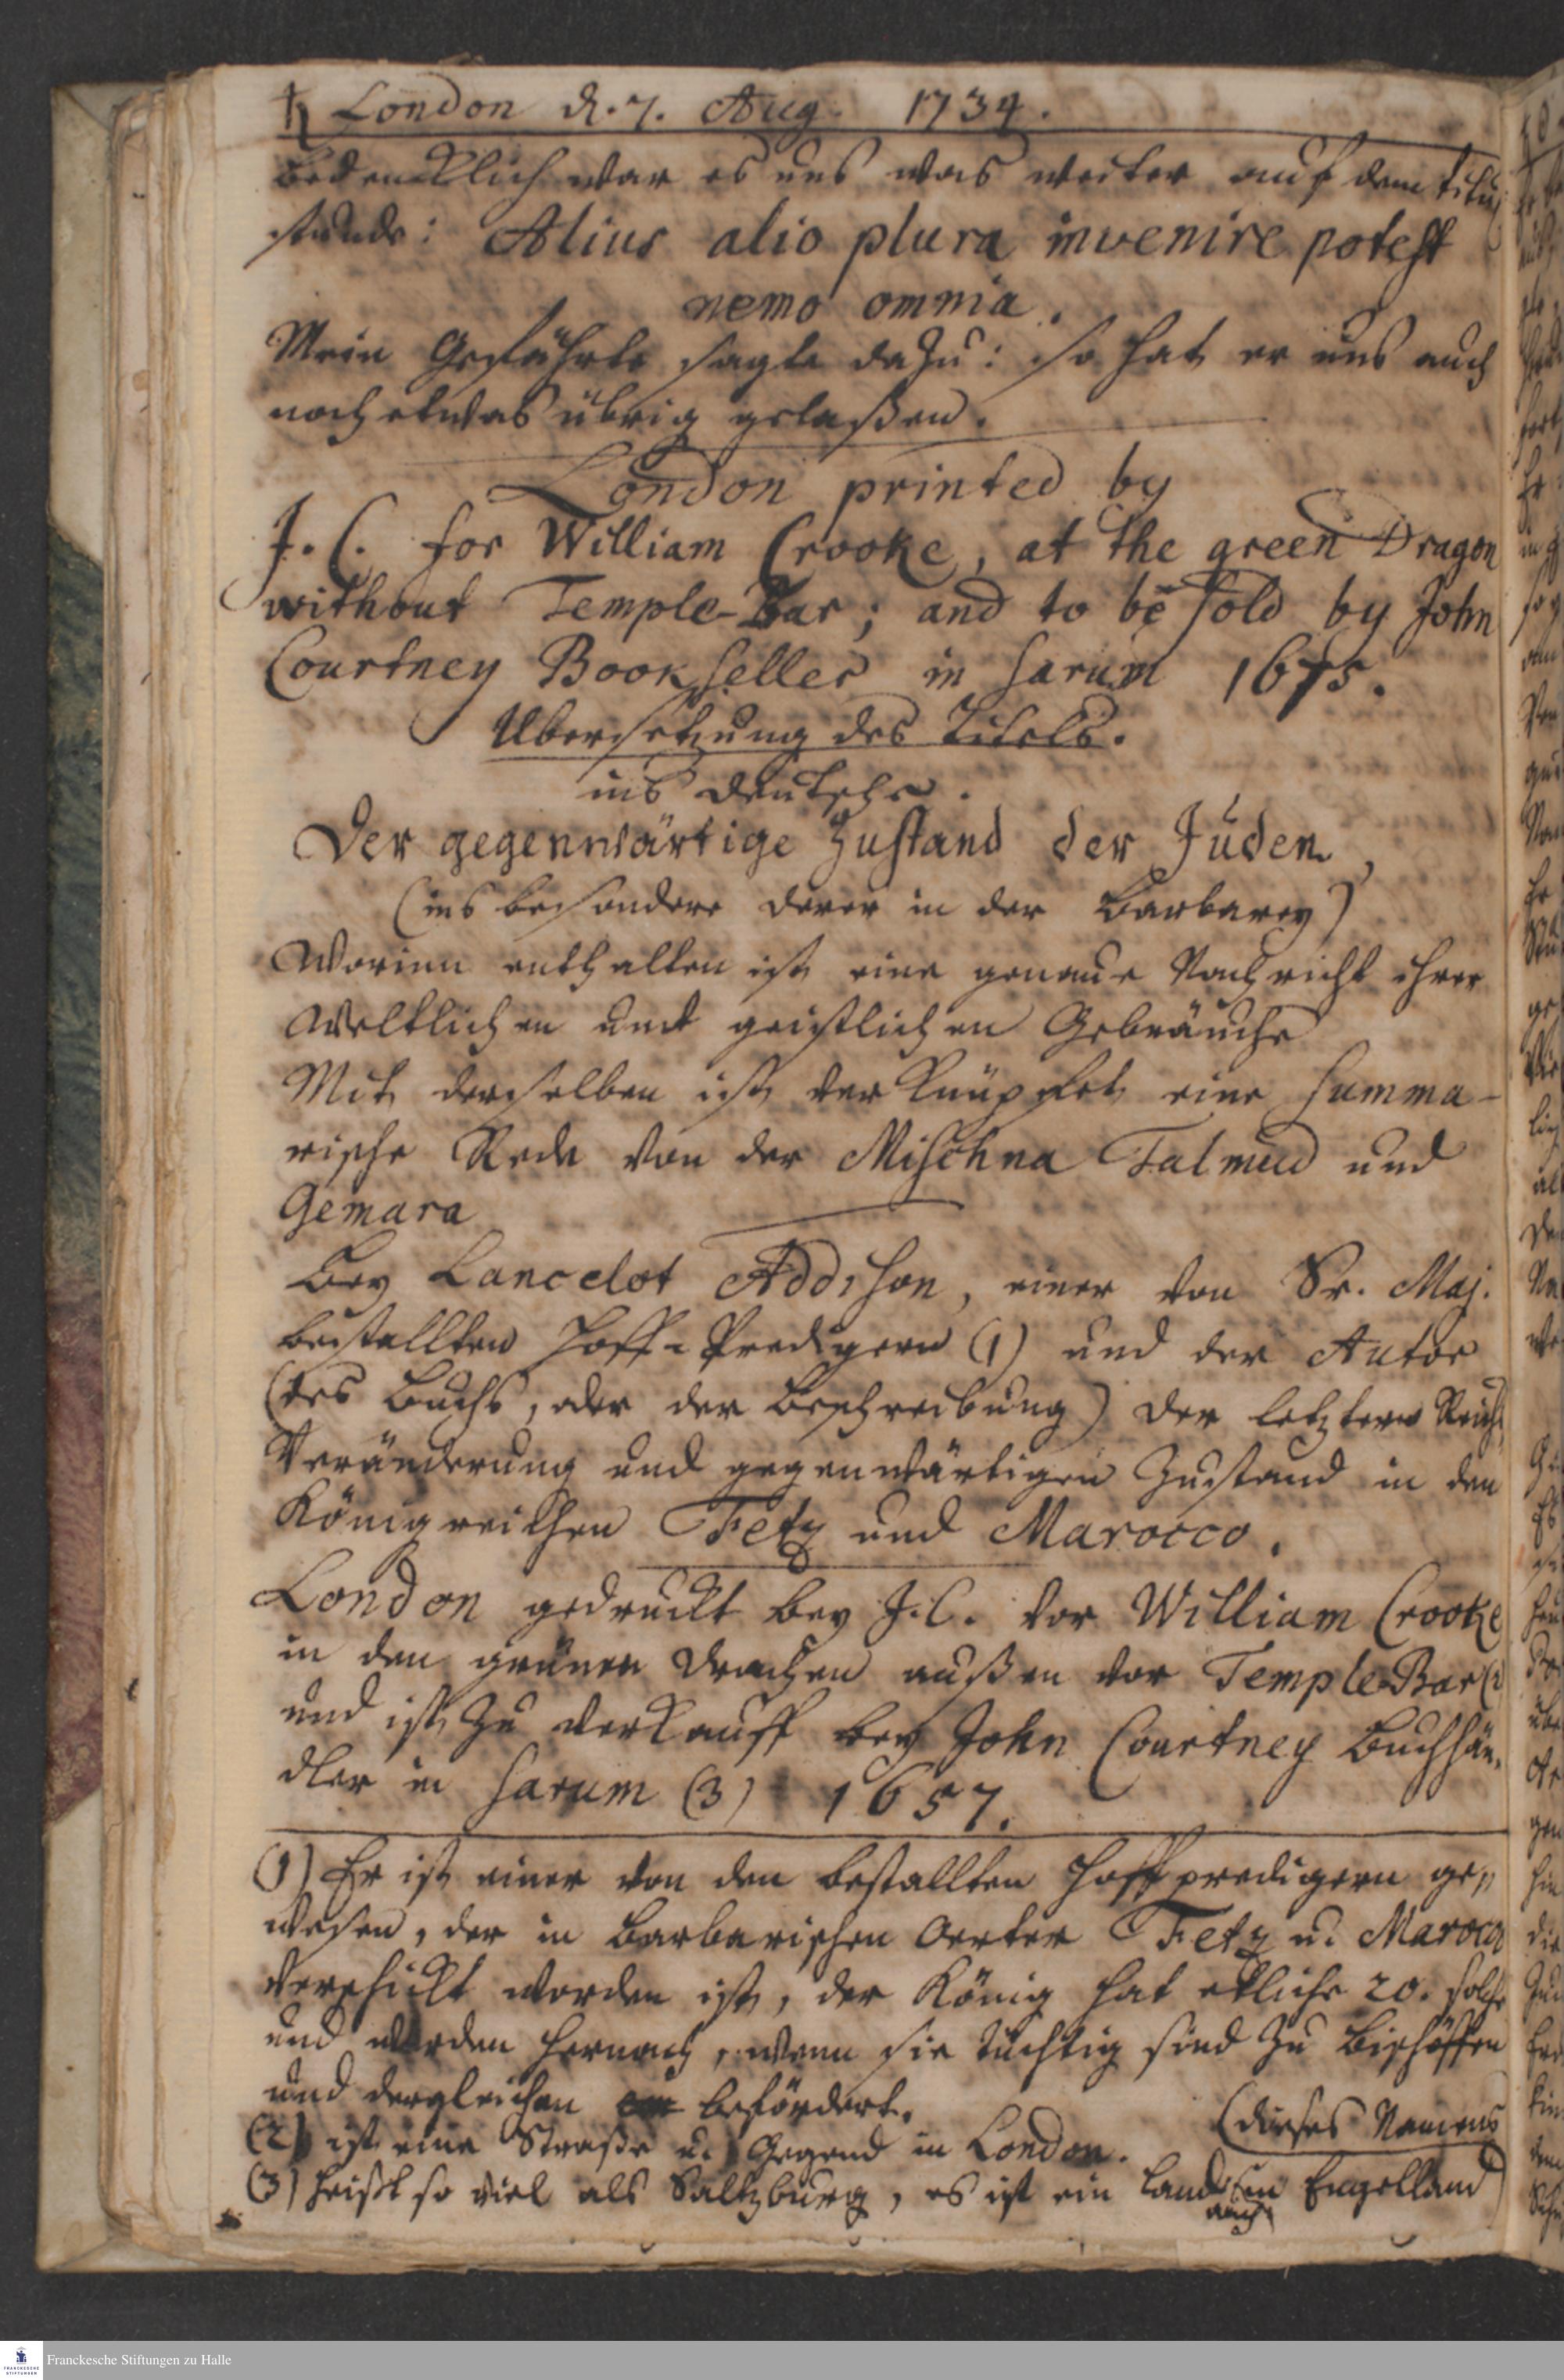 ђ London d. 7. Aug. 1734.
bedencklich war es uns was weiter auf dem titul
stunde: Alius alio plura invenire potest
nemo omnia.
Mein Gefährte sagte dazu: so hat er uns auch
noch etwas übrig gelaßen.
London printed by
J. C. for William Crooke, at the green Dragon
without Temple-Bar; and to be sold by John
Courtney Bookseller in Sarum 1675.
Ubersetzung des Titels.
ins deutsche.
Der gegenwärtige Zustand der Jüden,
(ins besondere derer in der Barbarey)
Worinn enthalten ist eine genaue Nachricht ihrer
Weltlichen und geistlichen Gebräuche
Mit derselben ist verknüpfet eine Summa-
rische Rede von der Mischna Talmud und
Gemara
Bey Lancelot Addison, einer von Sr. Maj.
bestallten Hoff-Predigern (1) und der Autor
(des Buchs, oder der Beschreibung) der letztern Reichs
Veränderung und gegenwärtigen Zustand in den
Königreichen Fetz und Marocco.
London gedruckt bey J. C. vor William Crooke
in den grünen Drachen außen vor Temple-Bar (2)
und ist zu verkauff bey John Courtney Buchhän-
dler in Sarum (3) 1657.
(1) Er ist einer von den bestallten Hoffpredigern ge-
wesen, der in Barbarischen Oerter Fetz u. Marocco
verschickt worden ist, der König hat etliche 20. solche
und werden hernach, wenn sie tüchtig sind zu Bischöffen
und dergleichen befördert.
(2) ist eine Straße u. Gegend in London. (dieses Namens
(3) heißt so viel als Saltzburg, es ist ein Land in Engelland
auch
Franckesche Stiftungen zu Halle